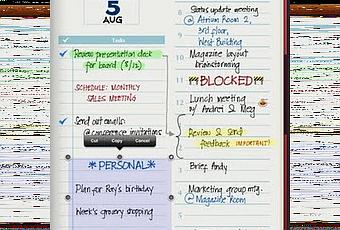 5
AUG
Tasks
Review presentation deck
for board (8/12)
SCHEDULE: MONTHLY
SALES MEETING
Send out emails:
@ conference invitations
Cut Copy Cancel
*PERSONAL*
Plan for Roy's birthday
Week's grocery shopping
8 Status update meeting
@ Atrium Room 2,
9 3rd floor,
Nest Building
10 Magazine layout
brainstorming
11 BLOCKED
12 Lunch meeting
w/ Andrei & Meg
1 Review & Send
2 feedback IMPORTANT!
3 Brief Andy
4 Marketing group mtg.
@ Magazine Room